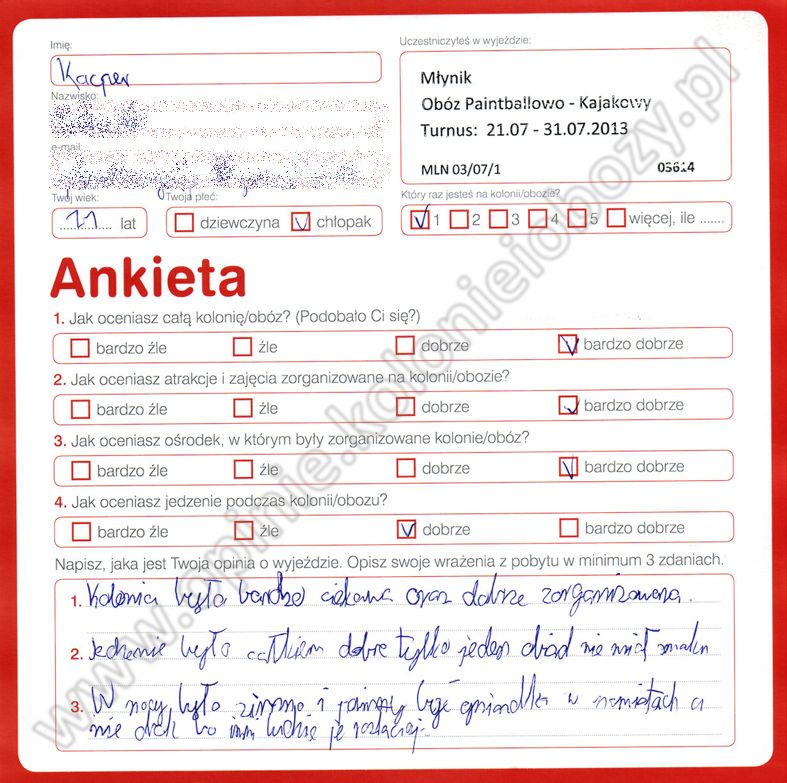 Imię:
Uczestniczyłeś w wyjeździe:
Kacper
Młynik
Obóz Paintballowo - Kajakowy
Turnus: 21.07 - 31.07.2013
MLN 03/07/1 03614
Nazwisko:
e-mail:
Twój wiek: Twoja płeć:
11 lat dziewczyna chłopak
Który raz jesteś na kolonii/obozie?
1 2 3 4 5 więcej, ile .......
Ankieta
1. Jak oceniasz całą kolonię/obóz? (Podobało Ci się?)
bardzo źle źle dobrze bardzo dobrze
2. Jak oceniasz atrakcje i zajęcia zorganizowane na kolonii/obozie?
bardzo źle źle dobrze bardzo dobrze
3. Jak oceniasz ośrodek, w którym były zorganizowane kolonie/obóz?
bardzo źle źle dobrze bardzo dobrze
4. Jak oceniasz jedzenie podczas kolonii/obozu?
bardzo źle źle dobrze bardzo dobrze
Napisz, jaka jest Twoja opinia o wyjeździe. Opisz swoje wrażenia z pobytu w minimum 3 zdaniach.
1. Kolonia była bardzo ciekawa oraz dobrze zorganizowana.
2. Jedzenie było całkiem dobre tylko jeden obiad nie miał smaku
3. W nocy było zimno i w namiotach a
nie bo inni ludzie je
www.opinie.kolonieiobozy.pl